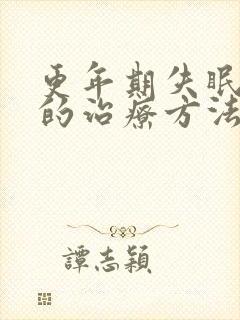 更年期失眠
的治疗方法
譚志穎